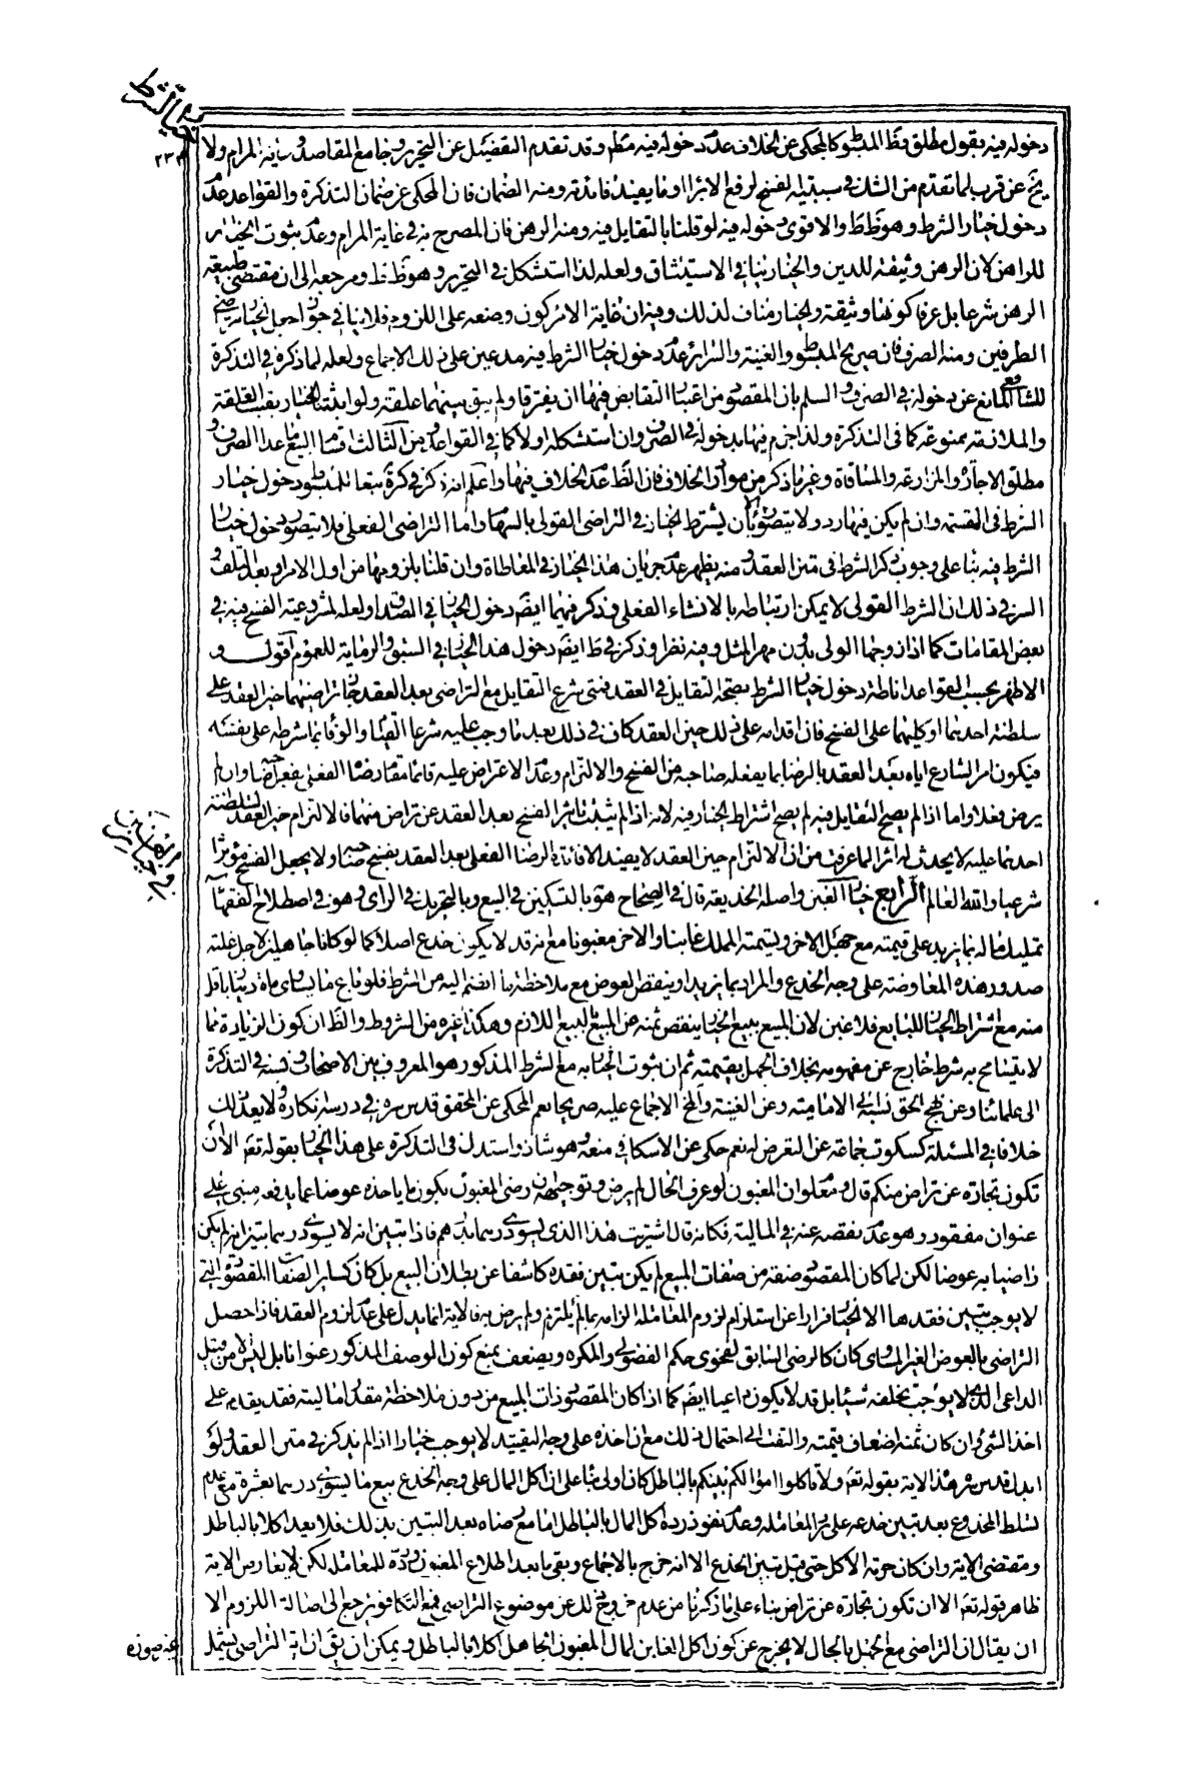 خيار الشرط
٢٣٣
دخوله فيه بقول مطلق فظ المبسوط كالمحكي عن الخلاف عدم دخوله فيه مطلقا وقد تقدم التفصيل عن التحرير وجامع المقاصد وغاية المرام ولا
يخ عن قرب لما تقدم من الشك في سببية الفسخ لرفع الابراء او ما يفيد فائدته ومنه الضمان فان المحكي عن ضمان التذكرة والقواعد عدم
دخول خيار الشرط وهو ظ ط والاقوى دخوله فيه لو قلنا بالتقايل فيه ومنه الرهن فان المصرح به في غاية المرام وعدم ثبوت الخيار
للراهن لان الرهن وثيقة للدين والخيار ينافي الاستيثاق ولعله لذا استشكل في التحرير وهو ظ ط ومرجعه الى ان مقتضى طبيعة
الرهن شرعا بل عرفا كونها وثيقة والخيار مناف لذلك وفيه ان غاية الامر كون وضعه على اللزوم فلا ينافي جواز جعل الخيار بتراضي
الطرفين ومنه الصرف فان صريح المبسوط والغنية والسرائر عدم دخول خيار الشرط فيه مدعين على ذلك الاجماع ولعله لما ذكره في التذكرة
للشافعي المانع عن دخوله في الصرف والسلم بان المقصود من اعتبار التقابض فيهما ان يفترقا ولم يبق بينهما علقة ولو اثبتنا الخيار بقيت العلقة
والملازمة ممنوعة كما في التذكرة ولذا جزم فيها بدخوله في الصرف وان استشكله اولا كما في القواعد ومن الثالث اقسام البيع ما عدا الصرف و
مطلق الاجارة والمزارعة والمساقاة وغير ما ذكر من موارد الخلاف فان الظ عدم الخلاف فيها واعلم انه ذكر في كرة تبعا للمبسوط دخول خيار
الشرط في القسمة وان لم يكن فيها رد ولا يتصور الا بان يشترط الخيار في التراضي القولي بالسهام واما التراضي الفعلي فلا يتصور دخول خيار
الشرط فيه بناء على وجوب ذكر الشرط في متن العقد ومنه يظهر عدم جريان هذا الخيار في المعاطاة وان قلنا بلزومها من اول الامر او بعد التلف و
السر في ذلك ان الشرط القولي لا يمكن ارتباطه بالانشاء الفعلي وذكر فيهما ايضم دخول الخيار في الصداق ولعله لمشروعية الفسخ فيه في
بعض المقامات كما اذا زوجها الولي بدون مهر المثل وفيه نظر وذكر في ط ايضم دخول هذا الخيار في السبق والرماية للعموم اقول و
الاظهر بحسب القواعد اناطة دخول خيار الشرط بصحة التقايل في العقد فمتى شرع التقايل مع التراضي بعد العقد جاز تراضيهما حين العقد على
سلطنة احدهما او كليهما على الفسخ فان اقدامه على ذلك حين العقد كاف في ذلك بعد ما وجب عليه شرعا القيام والوفاء بما شرطه على نفسه
فيكون امر الشارع اياه بعد العقد بالرضا بما يفعله صاحبه من الفسخ والالتزام وعدم الاعتراض عليه قائما مقام رضاه الفعلي بفعل صاحبه وان لم
يرض فعلا واما اذا لم يصح التقايل فيه لم يصح اشتراط الخيار فيه لانه اذا لم يثبت تاثير الفسخ بعد العقد عن تراض منهما فالالتزام حين العقد لسلطنة
احدهما عليه لا يحدث له اثرا لما عرفت من ان الالتزام حين العقد لا يفيد الا فائدة الرضا الفعلي بعد العقد بفسخ صاحبه ولا يجعل الفسخ مؤثرا
شرعيا والله العالم الرابع خيار الغبن واصله الخديعة قال في الصحاح هو بالتسكين في البيع وبالتحريك في الراي وهو في اصطلاح الفقهاء
تمليك ماله بما يزيد على قيمته مع جهل الاخر وتسمية المملك غابنا والاخر مغبونا مع انه قد لا يكون خدع اصلا كما لو كانا جاهلين لاجل غلبة
صدور هذه المعاوضة على وجه الخدع والمراد بما يزيد او ينقص العوض مع ملاحظة ما انضم اليه من الشرط فلو باع ما يساوي مائة دينار باقل
منه مع اشتراط الخيار للبايع فلا غبن لان المبيع ببيع الخيار ينقص ثمنه عن المبيع بالبيع اللازم وهكذا غيره من الشروط والظ ان كون الزيادة مما
لا يتسامح به شرط خارج عن مفهومه بخلاف الجهل بقيمته ثم ان ثبوت الخيار به مع الشرط المذكور هو المعروف بين الاصحاب ونسبه في التذكرة
الى علمائنا وعن نهج الحق نسبته الى الامامية وعن الغنية والمخ الاجماع عليه صريحا نعم المحكي عن المحقق قدس سره في درسه انكاره ولا يعد ذلك
خلافا في المسئلة كسكوت جماعة عن التعرض له نعم حكي عن الاسكافي منعه وهو شاذ واستدل في التذكرة على هذا الخيار بقوله تعم الا ان
تكون تجارة عن تراض منكم قال ومعلوم ان المغبون لو عرف الحال لم يرض وتوجيهه ان رضى المغبون بكون ما ياخذه عوضا عما يدفعه مبني على
عنوان مفقود وهو عدم نقصه عنه في المالية فكانه قال اشتريت هذا الذي يسوى درهما بدرهم فاذا تبين انه لا يسوى درهما تبين انه لم يكن
راضيا به عوضا لكن لما كان المقصود صفة من صفات المبيع لم يكن تبين فقده كاشفا عن بطلان البيع بل كان كسائر الصفات المقصودة التي
لا يوجب تبين فقدها الا الخيار فرارا عن استلزام لزوم المعاملة الزامه بما لم يلتزم ولم يرض به فالاية انما يدل على عدم لزوم العقد فاذا حصل
التراضي بالعوض الغير المساوي كان كالرضى السابق لفحوى حكم الفضولي والمكره ويضعف بمنع كون الوصف المذكور عنوانا بل ليس الا من قبيل
الداعي الذي لا يوجب تخلفه شيئا بل قد لا يكون داعيا ايضم كما اذا كان المقصود ذات المبيع من دون ملاحظة مقدار ماليته فقد يقدم على
اخذ الشيء وان كان ثمنه اضعاف قيمته والتفت الى احتمال ذلك مع ان اخذه على وجه التقييد لا يوجب خيارا اذا لم يذكر في متن العقد ولو
ابدل قدس سره هذه الاية بقوله تعم ولا تاكلوا اموالكم بينكم بالباطل كان اولى بناء على ان اكل المال على وجه الخدع ببيع ما يسوى درهما بعشرة مع عدم
تسلط المخدوع بعد تبين خدعه على رد المعاملة وعدم نفوذ رده اكل المال بالباطل اما مع رضاه بعد التبين بذلك فلا يعد اكلا بالباطل
ومقتضى الاية وان كان حرمة الاكل حتى قبل تبين الخدع الا انه خرج بالاجماع وبقي ما بعد اطلاع المغبون ورده للمعاملة لكن لا يعارض الاية
ظاهر قوله تعم الا ان تكون تجارة عن تراض بناء على ما ذكرنا من عدم خروج ذلك عن موضوع التراضي فمع التكافؤ يرجع الى اصالة اللزوم الا
ان يقال ان التراضي مع الجهل بالحال لا يخرج عن كون اكل الغابن لمال المغبون الجاهل اكلا بالباطل ويمكن ان يق ان اية التراضي يشمل
غير صورة